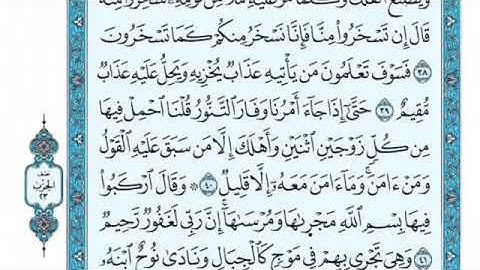 وَيَصْنَعُ ٱلْفُلْكَ وَكُلَّمَا مَرَّ عَلَيْهِ مَلَأٌ مِّن قَوْمِهِۦ سَخِرُوا۟ مِنْهُ
قَالَ إِن تَسْخَرُوا۟ مِنَّا فَإِنَّا نَسْخَرُ مِنكُمْ كَمَا تَسْخَرُونَ
٣٨ فَسَوْفَ تَعْلَمُونَ مَن يَأْتِيهِ عَذَابٌ يُخْزِيهِ وَيَحِلُّ عَلَيْهِ عَذَابٌ
مُّقِيمٌ ٣٩ حَتَّىٰٓ إِذَا جَآءَ أَمْرُنَا وَفَارَ ٱلتَّنُّورُ قُلْنَا ٱحْمِلْ فِيهَا
مِن كُلٍّ زَوْجَيْنِ ٱثْنَيْنِ وَأَهْلَكَ إِلَّا مَن سَبَقَ عَلَيْهِ ٱلْقَوْلُ
وَمَنْ ءَامَنَ ۚ وَمَآ ءَامَنَ مَعَهُۥٓ إِلَّا قَلِيلٌ ٤٠ ۞ وَقَالَ ٱرْكَبُوا۟
فِيهَا بِسْمِ ٱللَّهِ مَجْر۪ىٰهَا وَمُرْسَىٰهَآ ۚ إِنَّ رَبِّى لَغَفُورٌ رَّحِيمٌ
٤١ وَهِىَ تَجْرِى بِهِمْ فِى مَوْجٍ كَٱلْجِبَالِ وَنَادَىٰ نُوحٌ ٱبْنَهُۥ
نصف
الحزب
٢٣